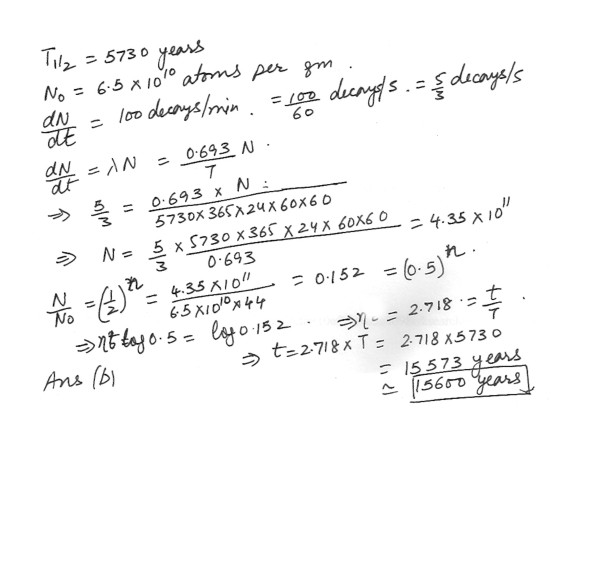 T1/2 = 5730 years
N0 = 6.5 × 10^10 atoms per gm .
dN/dt = 100 decays/min . = 100/60 decays/s . = 5/3 decays/s
dN/dt = λN = 0.693/T N .
⇒ 5/3 = 0.693 × N / 5730×365×24×60×60
⇒ N = 5/3 × 5730×365×24×60×60 / 0.693 = 4.35 × 10^11
N/N0 = (1/2)^n = 4.35×10^11 / 6.5×10^10×44 = 0.152 = (0.5)^n .
⇒ n log 0.5 = log 0.152 . ⇒ n = 2.718 = t/T .
⇒ t = 2.718 × T = 2.718 × 5730
= 15573 years
Ans (b) ≃ 15600 years